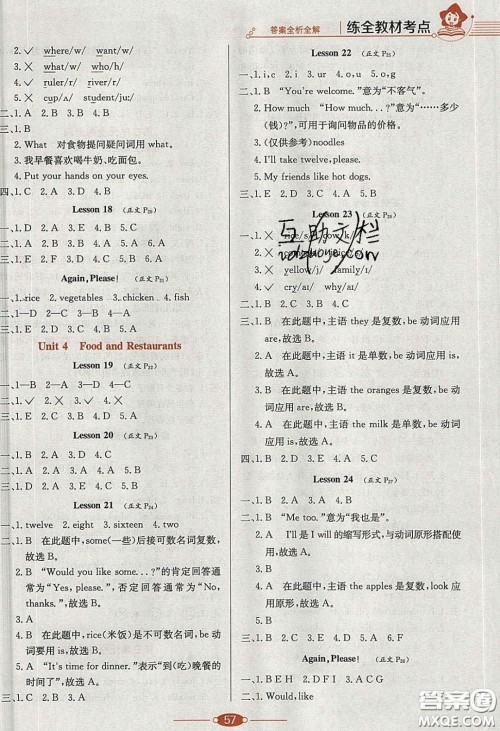 答案全析全解 练全教材考点
2. ✓ where/w/ want/w/
3. ✗ what/w/ who/h/
4. ✓ ruler/r/ river/r/
5. ✗ up/ʌ/ student/juː/
二、1. A 2. B 3. A 4. A 5. B
三、1. B
2. What 对食物提问疑问词用 what。
3. 我早餐喜欢喝牛奶、吃面包。
4. Put your hands on your eyes.
四、1. C 2. A 3. D 4. B
Lesson 18 (正文 P₂₀)
一、1. B 2. A 3. C 4. D
二、1. E 2. D 3. A 4. B 5. C
Again, Please! (正文 P₂₁)
一、1. rice 2. vegetables 3. chicken 4. fish
二、1—D 2—A 3—C 4—B
Unit 4 Food and Restaurants
Lesson 19 (正文 P₂₂)
一、1—B 2—A 3—D 4—C
二、1. ✓ 2. ✗ 3. ✗ 4. ✗
三、1. E 2. C 3. D 4. A 5. B
Lesson 20 (正文 P₂₃)
一、1. D 2. C 3. A 4. B
二、1. A 2. A 3. A 4. A 5. B
三、1. C 2. D 3. A 4. B
Lesson 21 (正文 P₂₄)
一、1. twelve 2. eight 3. sixteen 4. two
二、1. B 在此题中，some(一些)后接可数名词复数，故选 B。
2. B “Would you like some...?”的肯定回答通常为“Yes, please.”，否定回答通常为“No, thanks.”，故选 B。
3. A
4. B 在此题中，rice(米饭)是不可数名词，be 动词要用 is，故选 B。
5. A “It's time for dinner.”表示“到(吃)晚餐的时间了”，故选 A。
三、1. C 2. E 3. A 4. B 5. D
Lesson 22 (正文 P₂₅)
一、1. i, c 2. i, g 3. ur 4. o, u 5. o, g
二、1. B “You're welcome.”意为“不客气”。
2. How much “How much...?”意为“……多少(钱)？”，可用于询问物品的价格。
3. (仅供参考) noodles
4. I'll take twelve, please.
5. My friends like hot dogs.
三、1. B 2. D 3. E 4. C 5. A
Lesson 23 (正文 P₂₆)
互助文栏
3. ✗ yellow/j/ family/ɪ/
4. ✓ cry/aɪ/ why/aɪ/
二、1. E 2. A 3. B 4. C 5. D
三、1. B 在此题中，主语 they 是复数，be 动词应用 are，故选 B。
2. A 在此题中，主语 it 是单数，be 动词应用 is，故选 A。
3. B 在此题中，主语 the oranges 是复数，be 动词应用 are，故选 B。
4. A 在此题中，主语是单数，be 动词应用 is，故选 A。
四、1. B 2. D 3. E 4. C 5. A
Lesson 24 (正文 P₂₇)
一、1. B 2. A 3. D 4. C
二、1. B “Me too.”意为“我也是”。
2. A I'll 是 I will 的缩写形式，与动词原形搭配使用，故选 A。
3. B 在此题中，主语 the apples 是复数，look 应用原形，故选 B。
4. A
5. B
三、1. B 2. A 3. D 4. C
Again, Please! (正文 P₂₈)
一、1. B E H 2. D F I 3. A C G
二、1. Would, like
57
答案圈
MXQE.COM